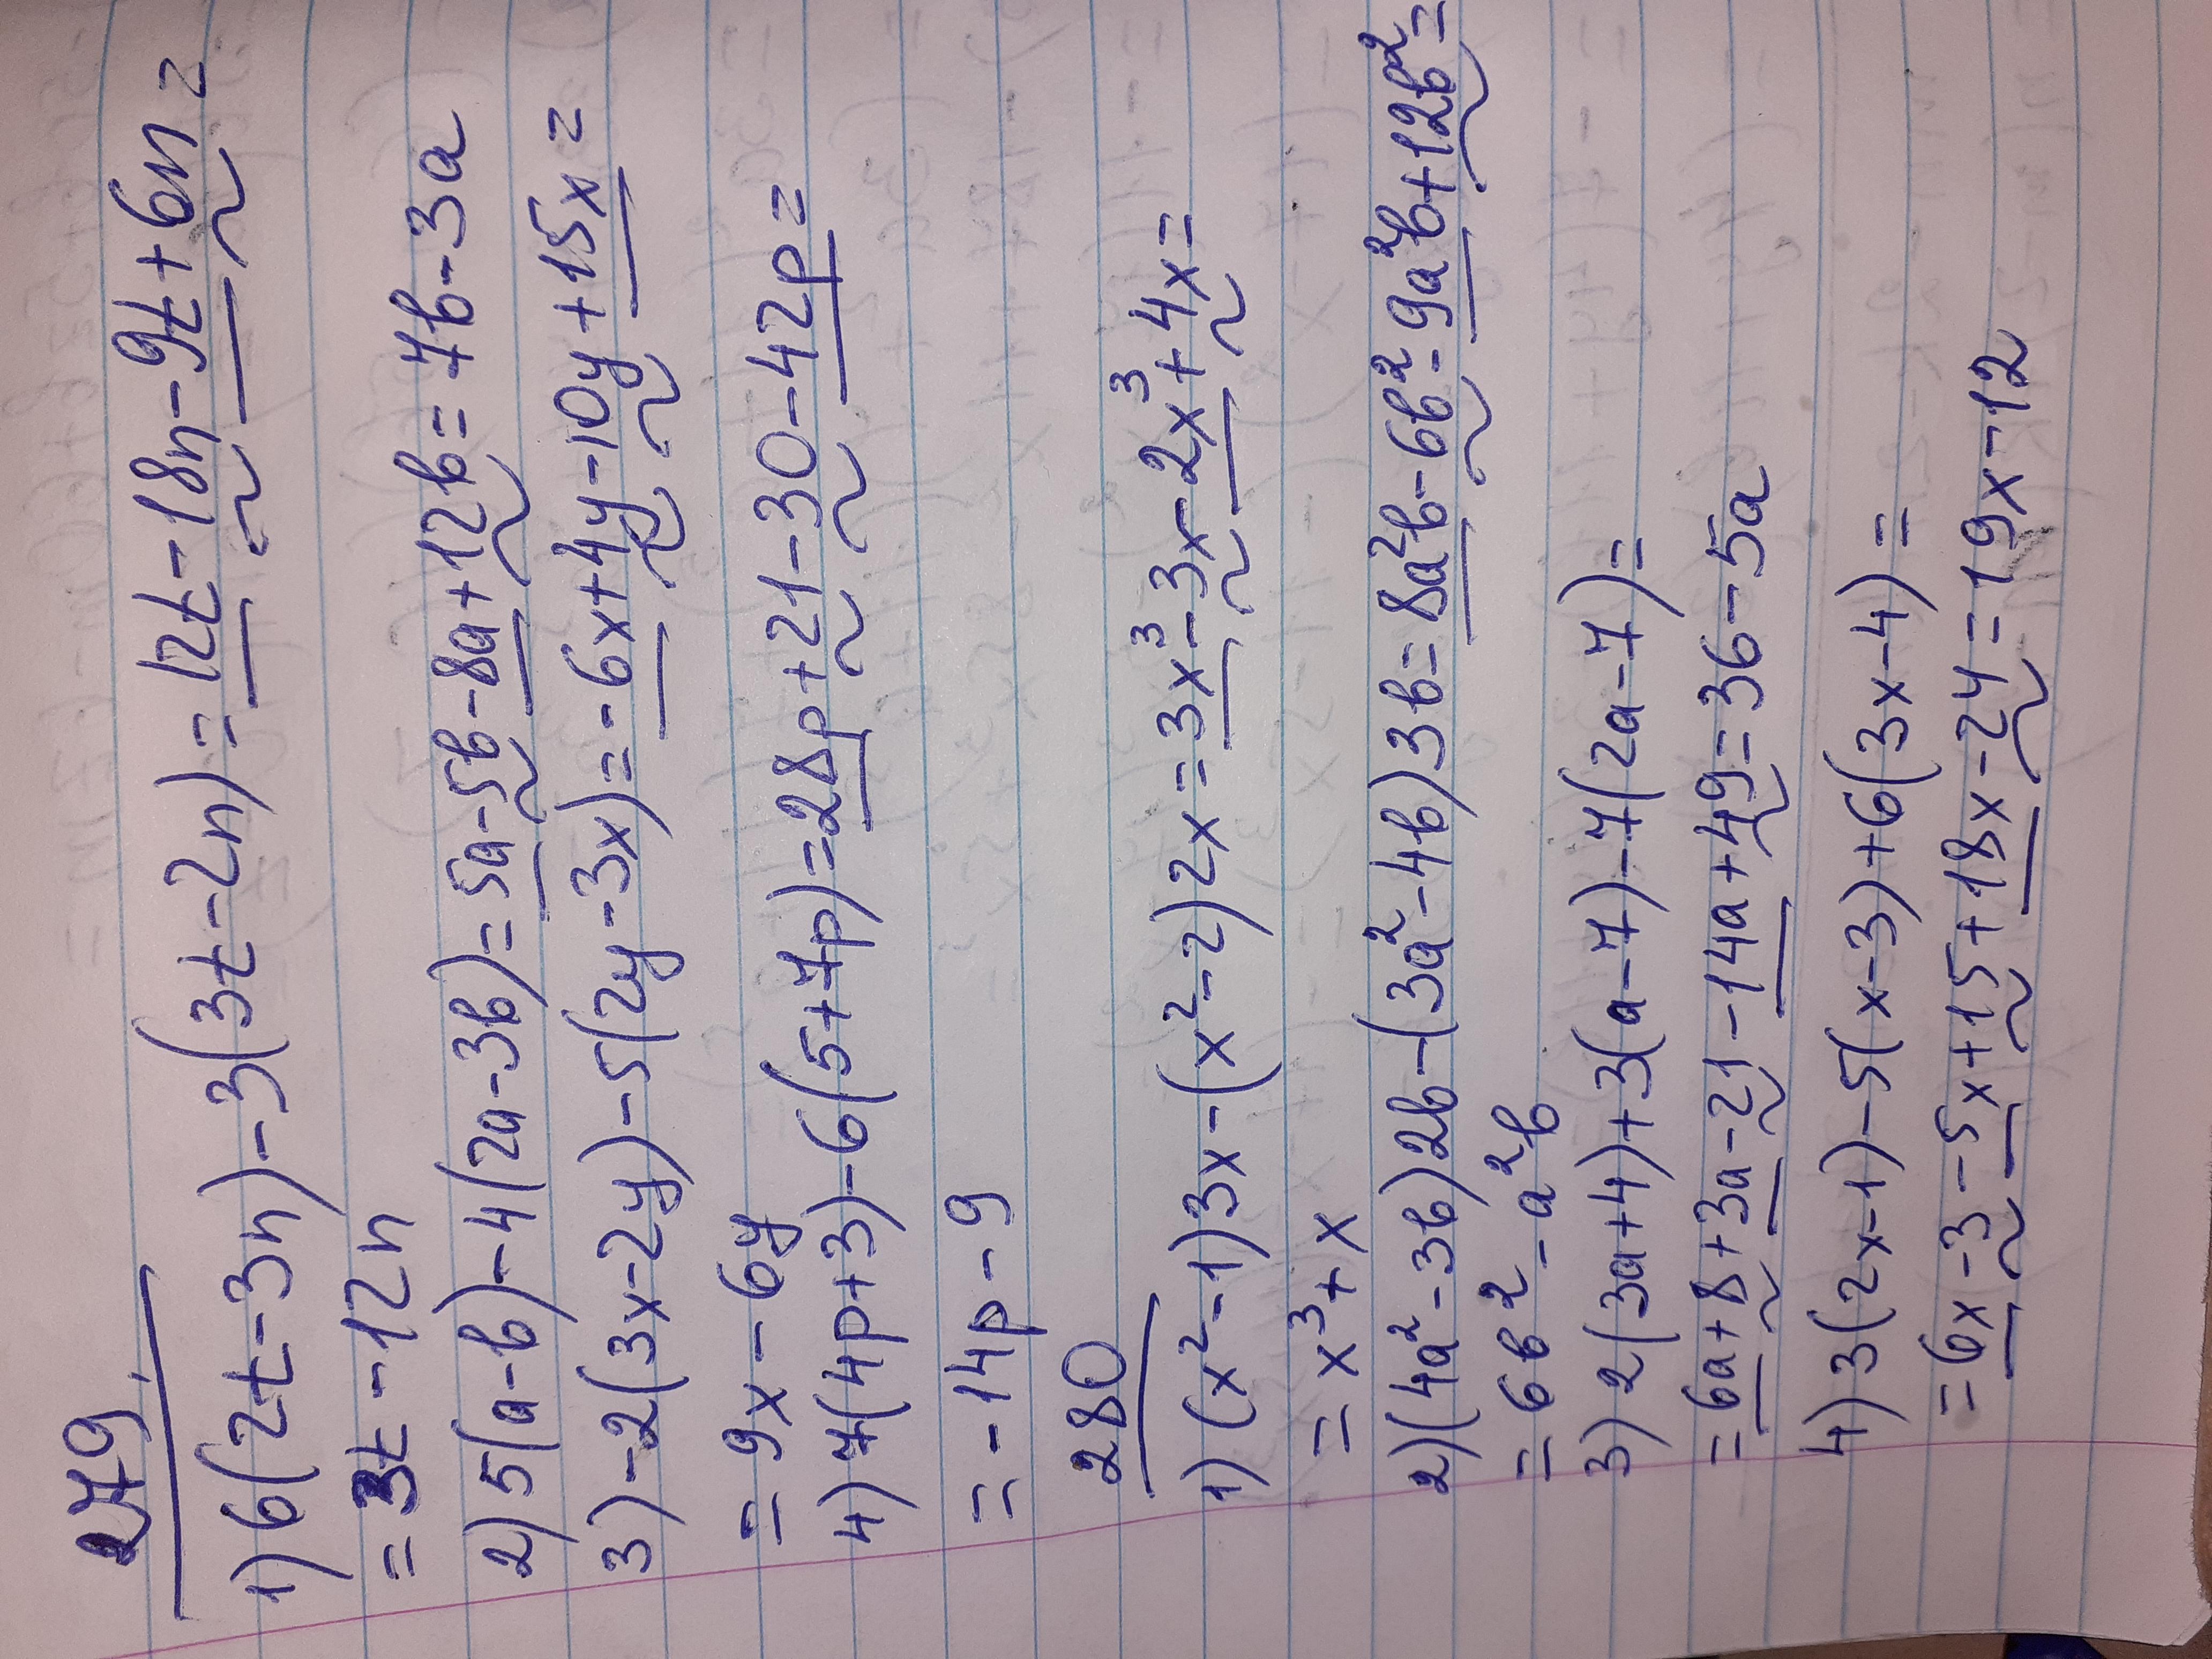 279.
1) 6(2t-3n)-3(3t-2n)=12t-18n-9t+6n=
=3t-12n
2) 5(a-b)-4(2a-3b)=5a-5b-8a+12b=7b-3a
3) -2(3x-2y)-5(2y-3x)=-6x+4y-10y+15x=
=9x-6y
4) 7(4p+3)-6(5+7p)=28p+21-30-42p=
=-14p-9
280
1) (x²-1)3x-(x²-2)2x=3x³-3x-2x³+4x=
=x³+x
2) (4a²-3b)2b-(3a²-4b)3b=8a²b-6b²-9a²b+12b²=
=6b²-a²b
3) 2(3a+4)+3(a-7)-7(2a-7)=
=6a+8+3a-21-14a+49=36-5a
4) 3(2x-1)-5(x-3)+6(3x-4)=
=6x-3-5x+15+18x-24=19x-12